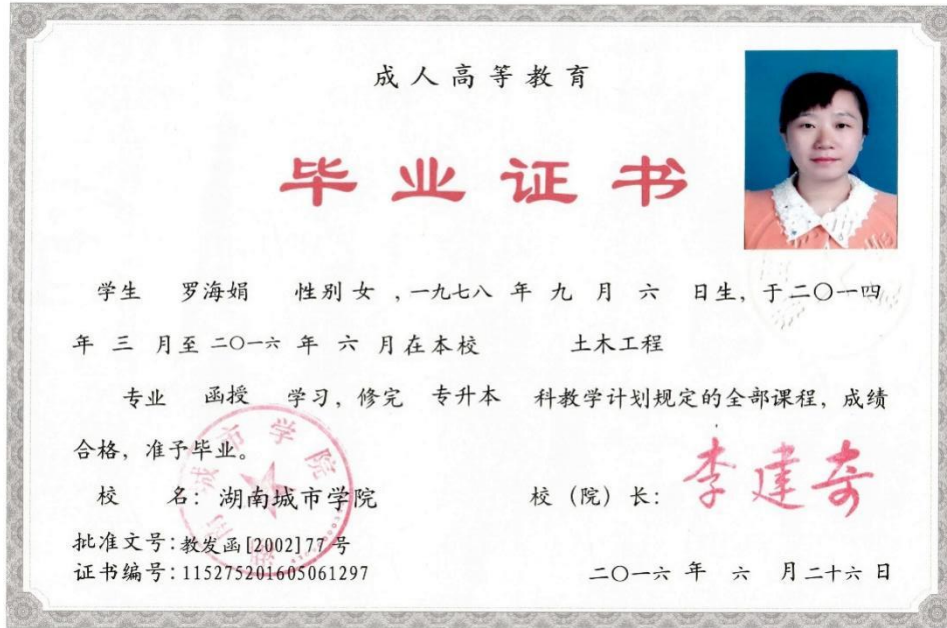 成人高等教育
毕业证书
学生 罗海娟 性别 女 ,一九七八 年 九 月 六 日生, 于二〇一四
年 三 月至二〇一六 年 六 月在本校 土木工程
专业 函授 学习, 修完 专升本 科教学计划规定的全部课程, 成绩
合格, 准予毕业。
校 名: 湖南城市学院 校 (院) 长: 李建奇
批准文号:教发函[2002]77号
证书编号:115275201605061297 二〇一六 年 六 月二十六日
湖南城市学院